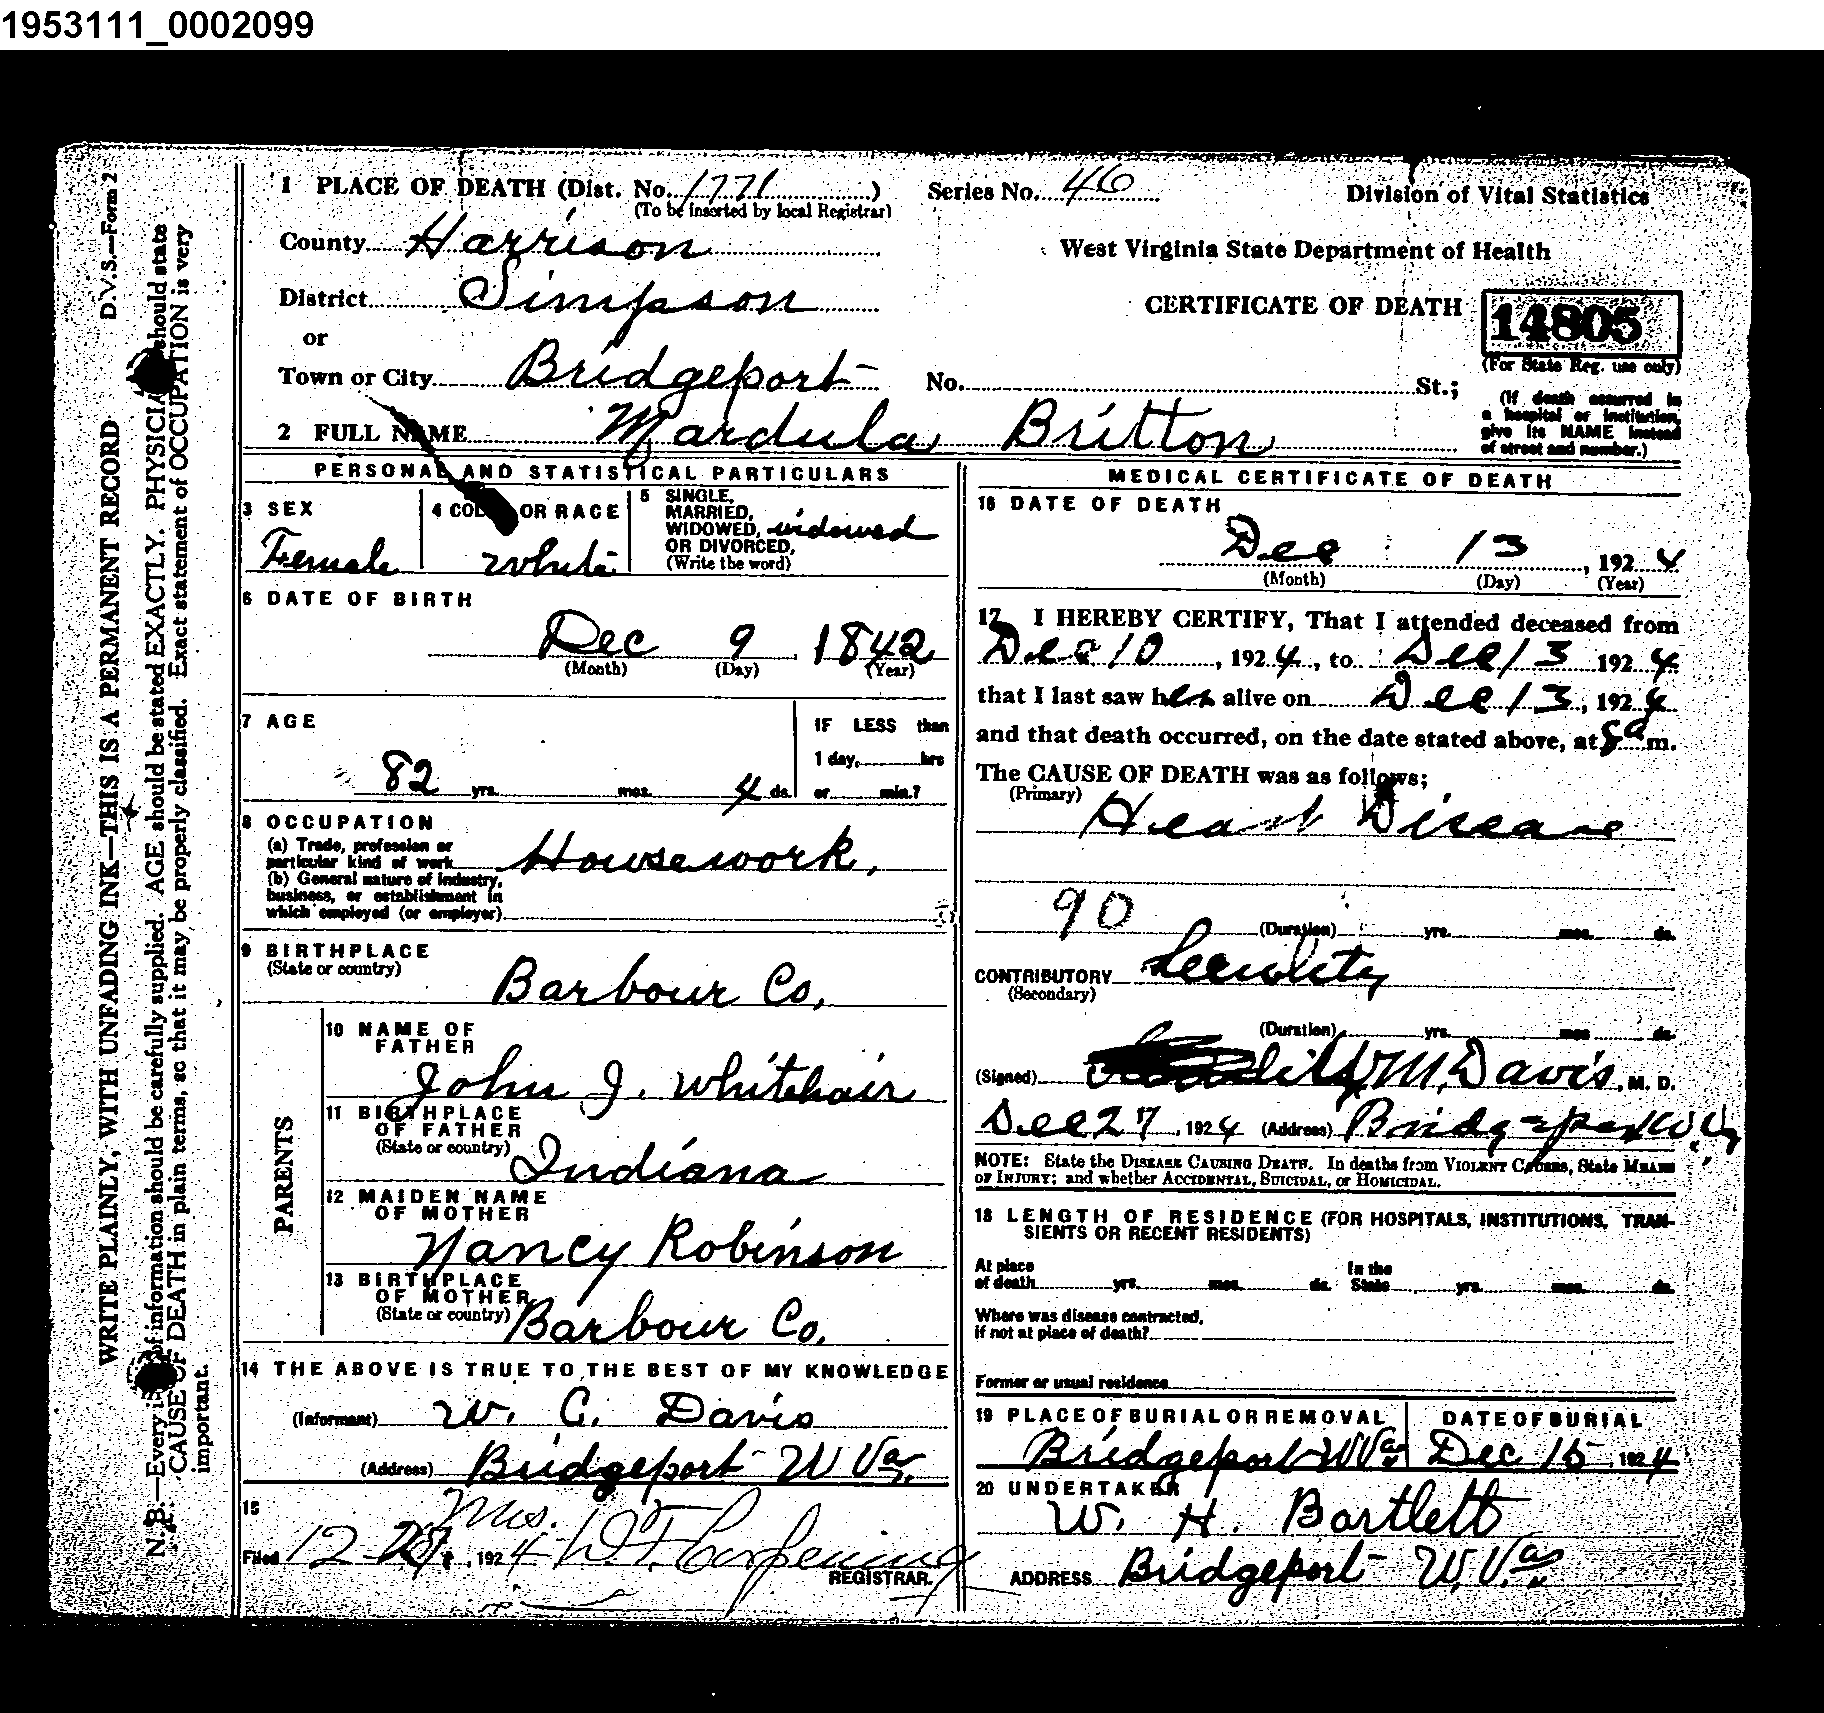 1953111_0002099
D.V.S.—Form 2
WRITE PLAINLY, WITH UNFADING INK—THIS IS A PERMANENT RECORD
N. B.—Every of information should be carefully supplied. AGE should be stated EXACTLY. PHYSICIA should state
CAUSE OF DEATH in plain terms, so that it may be properly classified. Exact statement of OCCUPATION is very
important.
1 PLACE OF DEATH (Dist. No. 1771)
(To be inserted by local Registrar)
Series No. 46
Division of Vital Statistics
County Harrison
West Virginia State Department of Health
District Simpson
CERTIFICATE OF DEATH
14805
(For State Reg. use only)
or
Town or City Bridgeport No. St.;
(If death occurred in
a hospital or institution,
give its NAME instead
of street and number.)
2 FULL NAME Mardula Britton
PERSONAL AND STATISTICAL PARTICULARS
3 SEX
Female
4 COL OR RACE
White
5 SINGLE,
MARRIED,
WIDOWED, widowed
OR DIVORCED,
(Write the word)
6 DATE OF BIRTH
Dec 9, 1842
(Month) (Day) (Year)
7 AGE
82 yrs. mos. 4 ds.
IF LESS than
1 day, hrs
or min.?
8 OCCUPATION
(a) Trade, profession or
particular kind of work Housework,
(b) General nature of industry,
business, or establishment in
which employed (or employer)
9 BIRTHPLACE
(State or country)
Barbour Co,
PARENTS
10 NAME OF
FATHER
John J. Whitehair
11 BIRTHPLACE
OF FATHER
(State or country)
Indiana
12 MAIDEN NAME
OF MOTHER
Nancy Robinson
13 BIRTHPLACE
OF MOTHER
(State or country) Barbour Co,
14 THE ABOVE IS TRUE TO THE BEST OF MY KNOWLEDGE
(Informant) W. C. Davis
(Address) Bridgeport W Va,
15
Mrs.
Filed 12-27, 1924 W. F. Corpening
REGISTRAR.
MEDICAL CERTIFICATE OF DEATH
16 DATE OF DEATH
Dec 13, 1924
(Month) (Day) (Year)
17 I HEREBY CERTIFY, That I attended deceased from
Dec 10, 1924, to Dec 13 1924
that I last saw her alive on Dec 13, 1924
and that death occurred, on the date stated above, at 8 a m.
The CAUSE OF DEATH was as follows;
(Primary)
Heart Disease
90
(Duration) yrs. mos. ds.
CONTRIBUTORY Senility
(Secondary)
(Duration) yrs. mos. ds.
(Signed) M. Davis, M. D.
Dec 27, 1924 (Address) Bridgeport W. Va
NOTE: State the DISEASE CAUSING DEATH. In deaths from VIOLENT CAUSES, State MEANS
OF INJURY; and whether ACCIDENTAL, SUICIDAL, or HOMICIDAL.
18 LENGTH OF RESIDENCE (FOR HOSPITALS, INSTITUTIONS, TRAN-
SIENTS OR RECENT RESIDENTS)
At place
of death yrs. mos. ds.
In the
State yrs. mos. ds.
Where was disease contracted,
if not at place of death?
Former or usual residence
19 PLACE OF BURIAL OR REMOVAL
Bridgeport W Va
DATE OF BURIAL
Dec 15, 1924
20 UNDERTAKER
W. H. Bartlett
ADDRESS Bridgeport W. Va